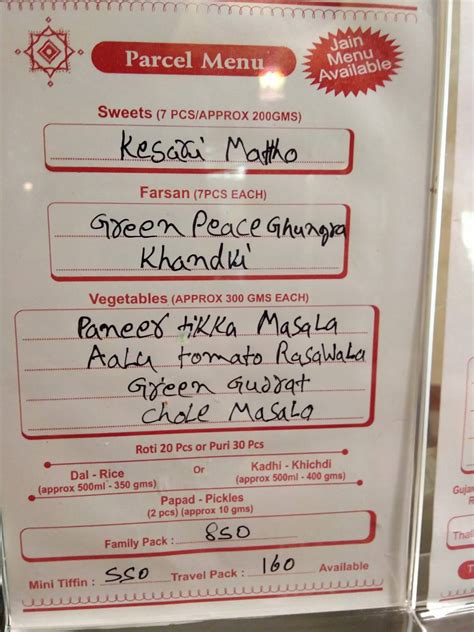 Parcel Menu
Jain
Menu
Available
Sweets (7 PCS/APPROX 200GMS)
Kesari Mattho
Farsan (7PCS EACH)
Green Peace Ghungra
Khandki
Vegetables (APPROX 300 GMS EACH)
Paneer tikka Masala
Aalu tomato Rasawala
Green Gudrat
Chole Masala
Roti 20 Pcs or Puri 30 Pcs
Dal - Rice Or Kadhi - Khichdi
(approx 500ml - 350 gms) (approx 500ml - 400 gms)
Papad - Pickles
(2 pcs) (approx 10 gms)
Family Pack : 850
Mini Tiffin : 550 Travel Pack : 160 Available